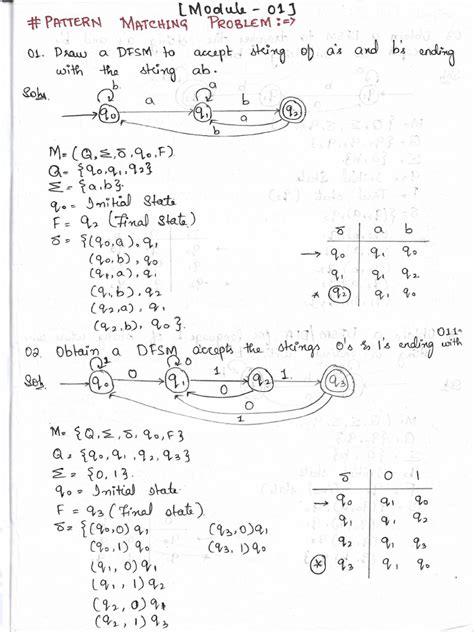 [Module - 01]
# PATTERN MATCHING PROBLEM :=>
01. Draw a DFSM to accept string of a's and b's ending
with the string ab.
Soln.
b a
a b
q0 q1 q2
a
b
M = (Q, Σ, δ, q0, F)
Q = {q0, q1, q2}
Σ = {a, b}.
q0 = Initial State
F = q2 (Final State)
δ = {(q0, a), q1
(q0, b), q0
(q1, a), q1
(q1, b), q2
(q2, a), q1
(q2, b), q0}.
δ a b
→ q0 q1 q0
q1 q1 q2
* q2 q1 q0
02. Obtain a DFSM accepts the strings 0's & 1's ending with
011
Sol.
1 0
0 1 1
q0 q1 q2 q3
0
0
1
M = {Q, Σ, δ, q0, F}
Q = {q0, q1, q2, q3}
Σ = {0, 1}.
q0 = Initial state
F = q3 (Final state)
δ = {(q0, 0) q1 (q3, 0) q1
(q0, 1) q0 (q3, 1) q0
(q1, 0) q1
(q1, 1) q2
(q2, 0) q1
(q2, 1) q3
δ 0 1
→ q0 q1 q0
q1 q1 q2
q2 q1 q3
* q3 q1 q0